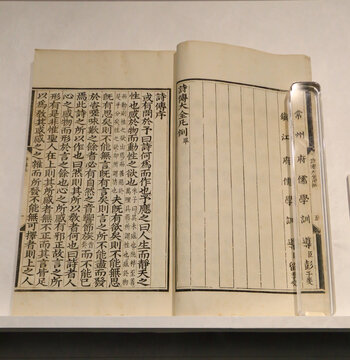 常州府儒學訓導臣彭子斐
鎮江府儒學訓導臣
詩傳大全凡例畢
詩傳序
或有問於予曰詩何為而作也予應之曰人生而靜天之
性也感於物而動性之欲也
夫既有欲矣則不能無思
既有思矣則不能無言既有言矣則言之所不能盡而發
於咨嗟咏歎之餘者必有自然之音響節族而不能已
焉此詩之所以作也曰然則其所以教者何也曰詩者人
心之感物而形於言之餘也心之所感有邪正故言之所
形有是非惟聖人在上則其所感者無不正而其言皆足
以為教其或感之之雜而所發不能無可擇者則上之人